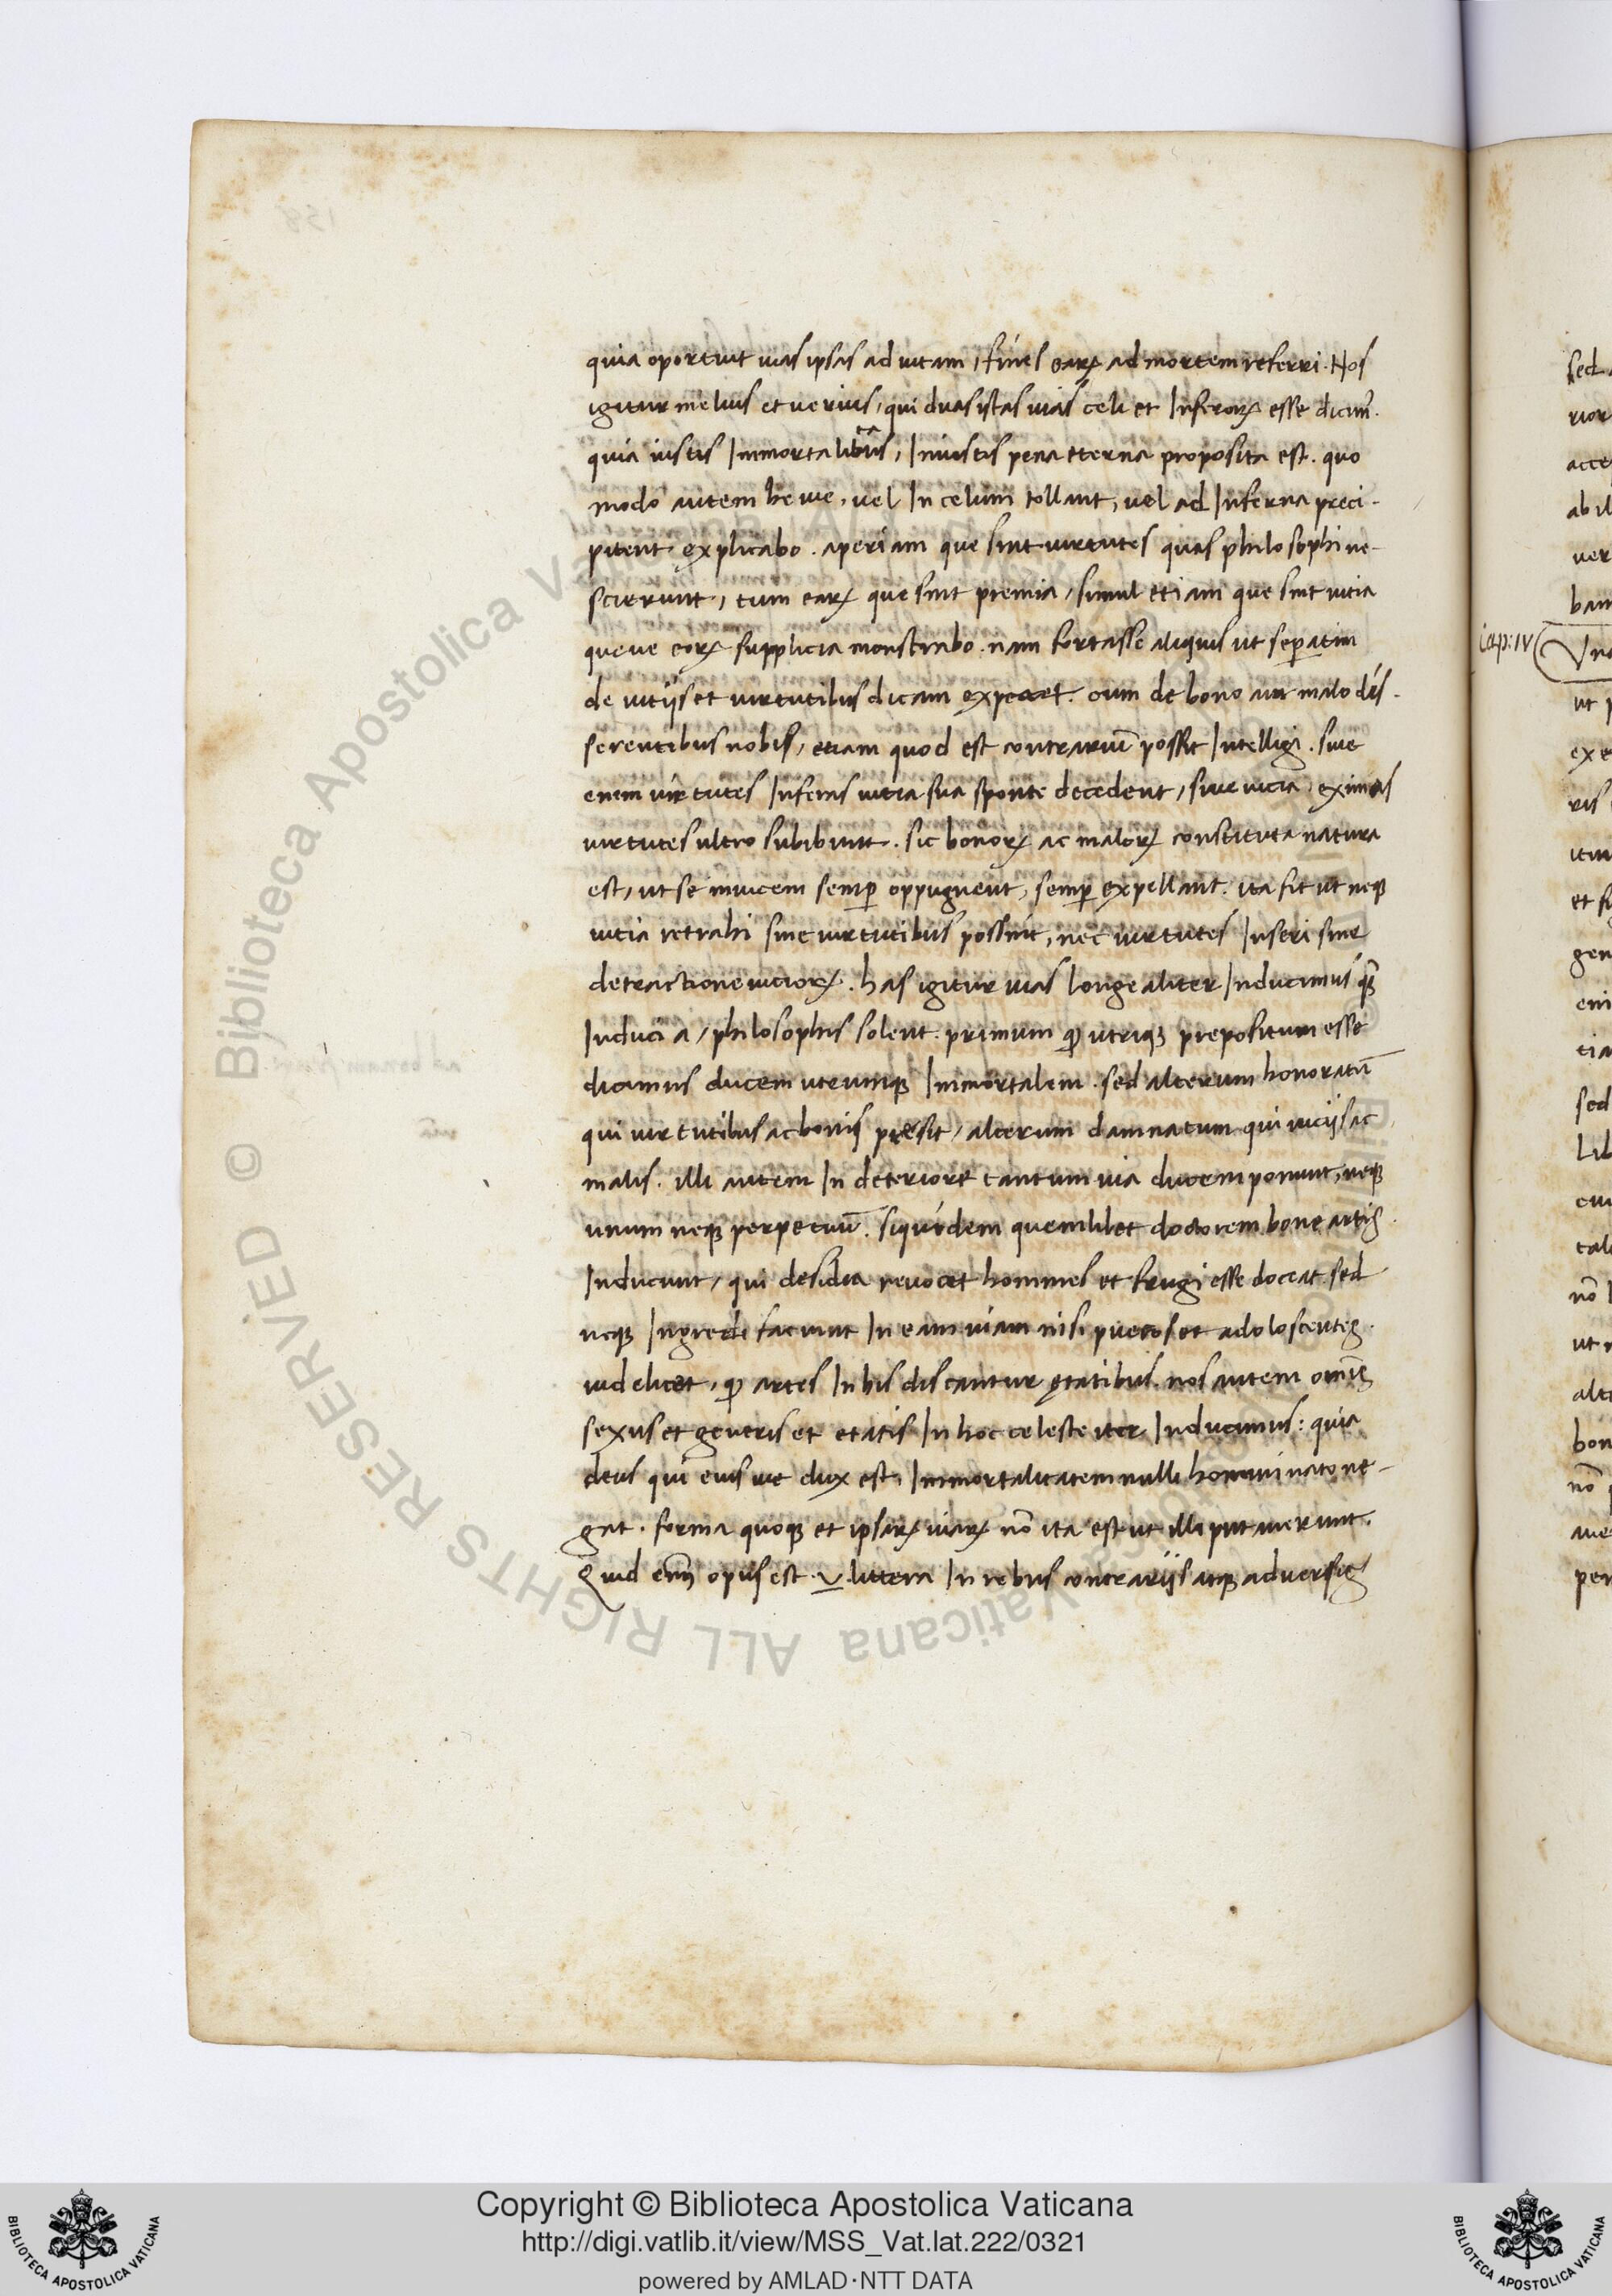 quia oportuit uias ipsas ad uitam, fines earꝝ ad mortem referri. Nos
igitur melius et uerius, qui duas istas uias celi et Inferorꝝ esse dicimꝰ.
quia iustis Immortalitas, Iniustis pena eterna proposita est. quo
modo autem he uie, uel In celum tollant, uel ad Inferna preci-
pitent explicabo. aperiam que sint uirtutes quas philosophi ne-
scierunt, tum earꝝ que sint premia, simul etiam que sint uicia
queue eorꝝ supplicia monstrabo. nam fortasse aliquis ut seꝑatim
de uitijs et uirtutibus dicam expectet. cum de bono aut malo dis-
serentibus nobis, etiam quod est contrariū possit Intelligi. siue
enim uirtutes Inseras uitia sua sponte decedent, siue uicia eximas
uirtutes ultro subibunt. sic bonorꝝ ac malorꝝ constituta natura
est, ut se inuicem semꝑ oppugnent, semꝑ expellant. ita fit ut neqꝫ
uitia retrahi sine uirtutibus possint, nec uirtutes Inseri sine
detractione uiciorꝝ. has igitur uias longe aliter Inducimus qꝫ̃
Induci a, philosophis solent. primum ꝙ utriqꝫ prepositum esse
dicimus ducem utrumqꝫ Immortalem. sed alterum honoratū
qui uirtutibus ac bonis presit, alterum damnatum qui uicijs ac
malis. illi autem In deteriore tantum uia ducem ponunt, neqꝫ
unum neqꝫ perpetuū. siquidem quemlibet doctorem bone artis
Inducunt, qui desidia reuocet homines et frugi esse doceat. sed
neqꝫ Ingredi faciunt In eam uiam nisi pueros et adoloscentes.
uidelicet, ꝙ artes In his discantur ętatibus. nos autem omīs
sexus et generis et etatis In hoc celeste iter Inducimus: quia
deus qui eius uie dux est, Immortalitatem nulli homini nato ne-
gat. forma quoqꝫ et ipsarꝝ uiarꝝ nō ita est ut illi putauerunt.
Quid enī opus est. V. littera In rebus contrarijs atqꝫ aduersis
cap: IV
Copyright © Biblioteca Apostolica Vaticana
http://digi.vatlib.it/view/MSS_Vat.lat.222/0321
powered by AMLAD·NTT DATA